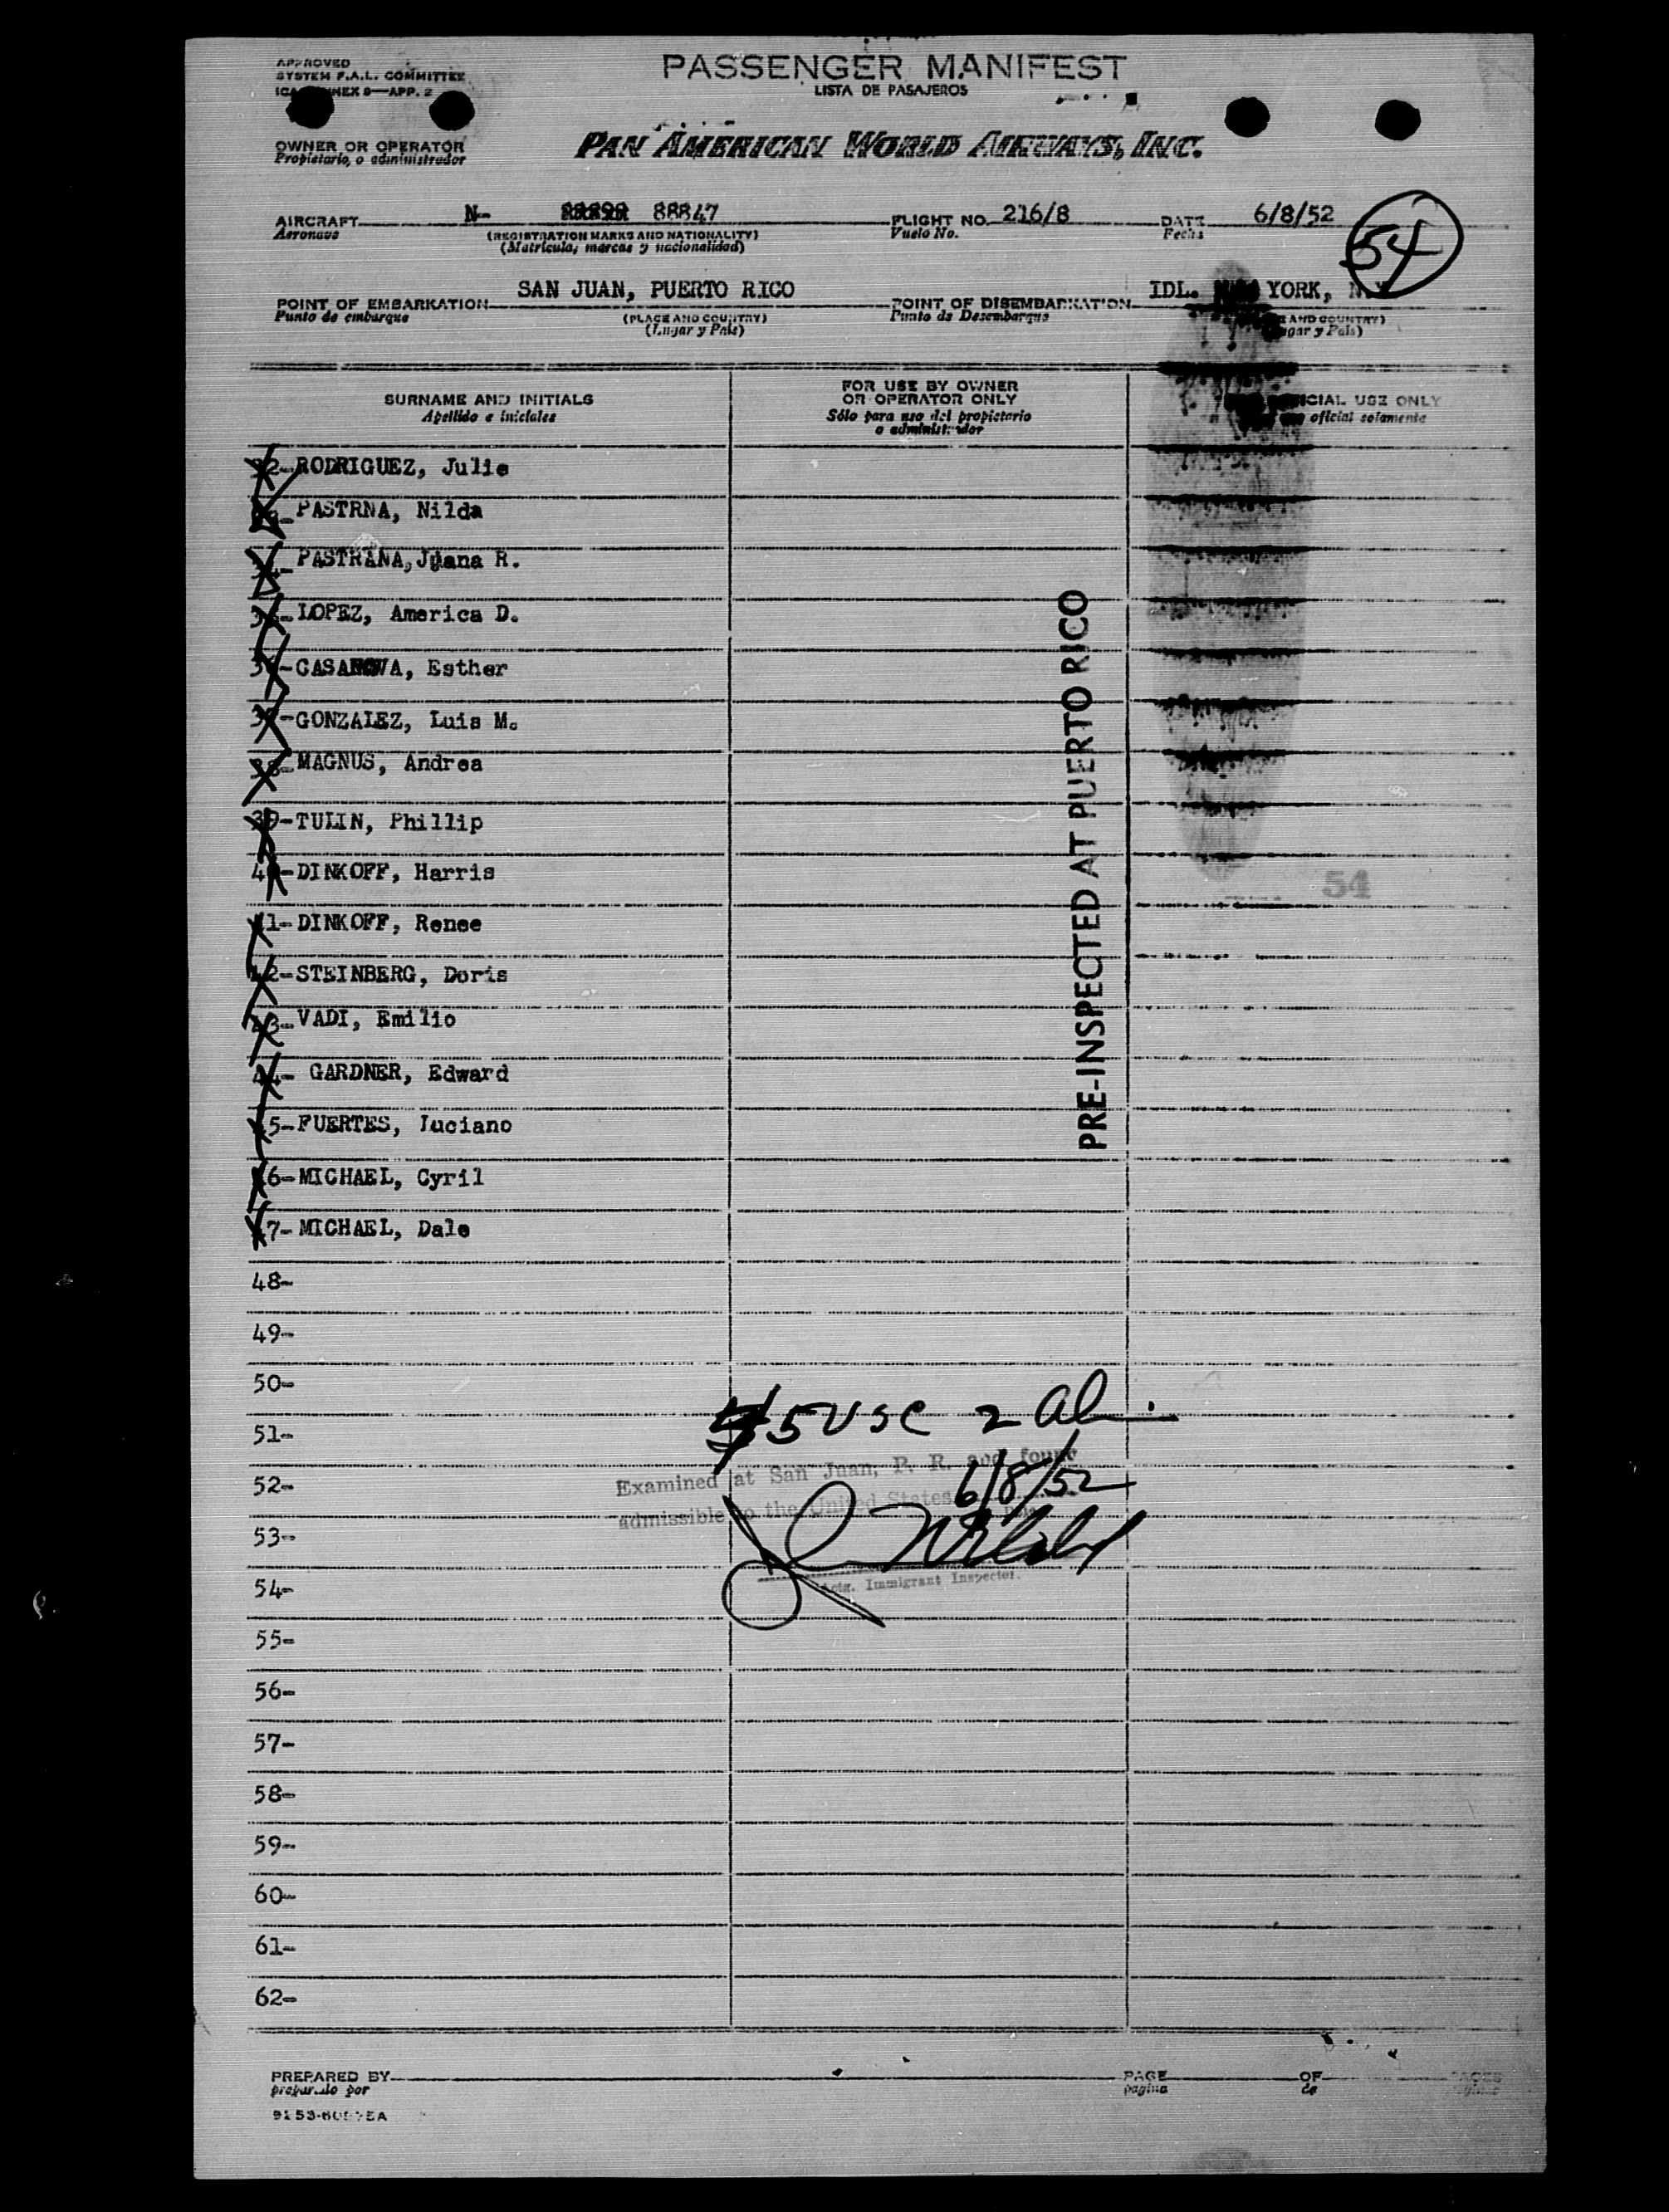 APPROVED
SYSTEM F.A.L. COMMITTEE
ICA ANNEX 9—APP. 2
PASSENGER MANIFEST
LISTA DE PASAJEROS
OWNER OR OPERATOR
Propietario, o administrador
PAN AMERICAN WORLD AIRWAYS, INC.
AIRCRAFT N- 88847 FLIGHT NO. 216/8 DATE 6/8/52
Aeronave (REGISTRATION MARKS AND NATIONALITY) Vuelo No. Fecha
(Matricula, marcas y nacionalidad)
54
POINT OF EMBARKATION SAN JUAN, PUERTO RICO POINT OF DISEMBARKATION IDL. YORK, N.Y.
Punto de embarque (PLACE AND COUNTRY) Punto de Desembarque AND COUNTRY)
(Lugar y Pais) gar y Pais)
SURNAME AND INITIALS FOR USE BY OWNER OR OPERATOR ONLY CIAL USE ONLY
Apellido e iniciales Sólo para uso del propietario o administrador oficial solamente
32-RODRIGUEZ, Julie
PASTRNA, Nilda
PASTRANA, Juana R.
LOPEZ, America D.
CASANOVA, Esther
GONZALEZ, Luis M.
38-MAGNUS, Andrea
39-TULIN, Phillip
40-DINKOFF, Harris
41-DINKOFF, Renee
42-STEINBERG, Doris
43-VADI, Emilio
44- GARDNER, Edward
45-FUERTES, Luciano
46-MICHAEL, Cyril
47-MICHAEL, Dale
PRE-INSPECTED AT PUERTO RICO
54
48-
49-
50-
51-
52-
53-
54-
55-
56-
57-
58-
59-
60-
61-
62-
5 USC 2 Al.
Examined at San Juan, P. R. and found
admissible to the United States 6/8/52
Date
Actg. Immigrant Inspector.
PREPARED BY PAGE OF PAGES
preparado por pagina de